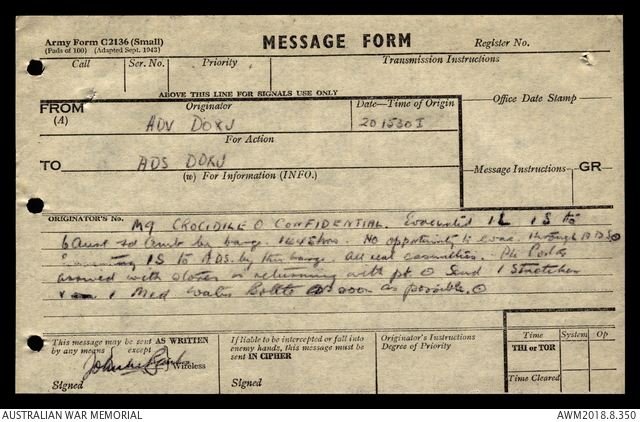 Army Form C2136 (Small)
(Pads of 100) (Adapted Sept. 1943)
MESSAGE FORM
Register No.
Call
Ser. No.
Priority
Transmission Instructions
ABOVE THIS LINE FOR SIGNALS USE ONLY
FROM
(A)
Originator
Date—Time of Origin
Office Date Stamp
ADV DOXJ
201530I
For Action
TO
ADS DOXJ
(w) For Information (INFO.)
Message Instructions
GR
ORIGINATOR'S No.
M9 CONFIDENTIAL. Evacuated 1L 1S to
6 Aust by barge. 1445 hrs. No opportunity to evac. through
1S to ADS. by this barge. All casualties. Pte
arrived with stores returning with pt. Send 1 Stretcher
1 Med Water Bottle as soon as possible.
This message may be sent AS WRITTEN
by any means except
Wireless
Signed
If liable to be intercepted or fall into
enemy hands, this message must be
sent IN CIPHER
Signed
Originator's Instructions
Degree of Priority
Time
System
Op
THI or TOR
Time Cleared
AUSTRALIAN WAR MEMORIAL
AWM2018.8.350